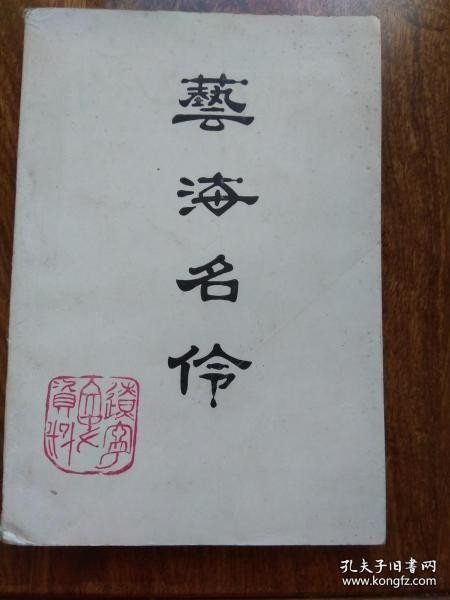 藝海名伶
遼寧
文史
資料
孔夫子旧书网
www.kongfz.com